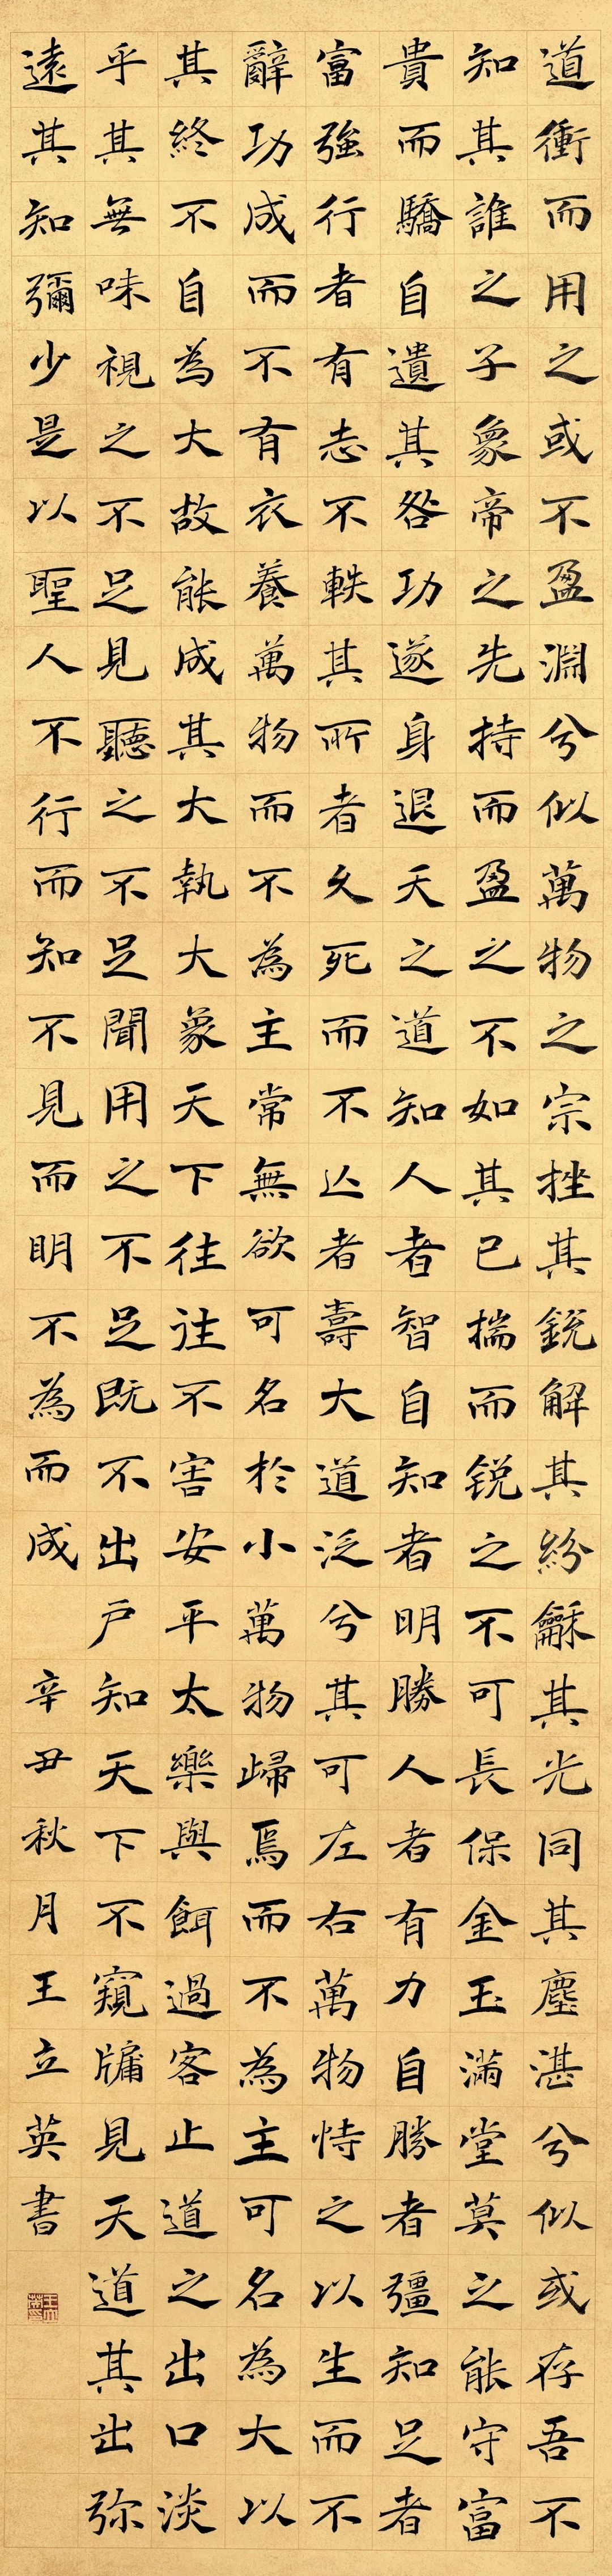 道衝而用之或不盈淵兮似萬物之宗挫其銳解其紛龢其光同其塵湛兮似或存吾不
知其誰之子象帝之先持而盈之不如其已揣而锐之不可長保金玉滿堂莫之能守富
貴而驕自遺其咎功遂身退天之道知人者智自知者明勝人者有力自勝者彊知足者
富強行者有志不軼其所者久死而不亾者壽大道泛兮其可左右萬物恃之以生而不
辭功成而不有衣養萬物而不為主常無欲可名於小萬物歸焉而不為主可名為大以
其終不自為大故能成其大執大象天下往往不害安平太樂與餌過客止道之出口淡
乎其無味視之不足見聽之不足聞用之不足既不出戶知天下不窺牖見天道其出弥
遠其知彌少是以聖人不行而知不見而明不為而成 辛丑秋月王立英書